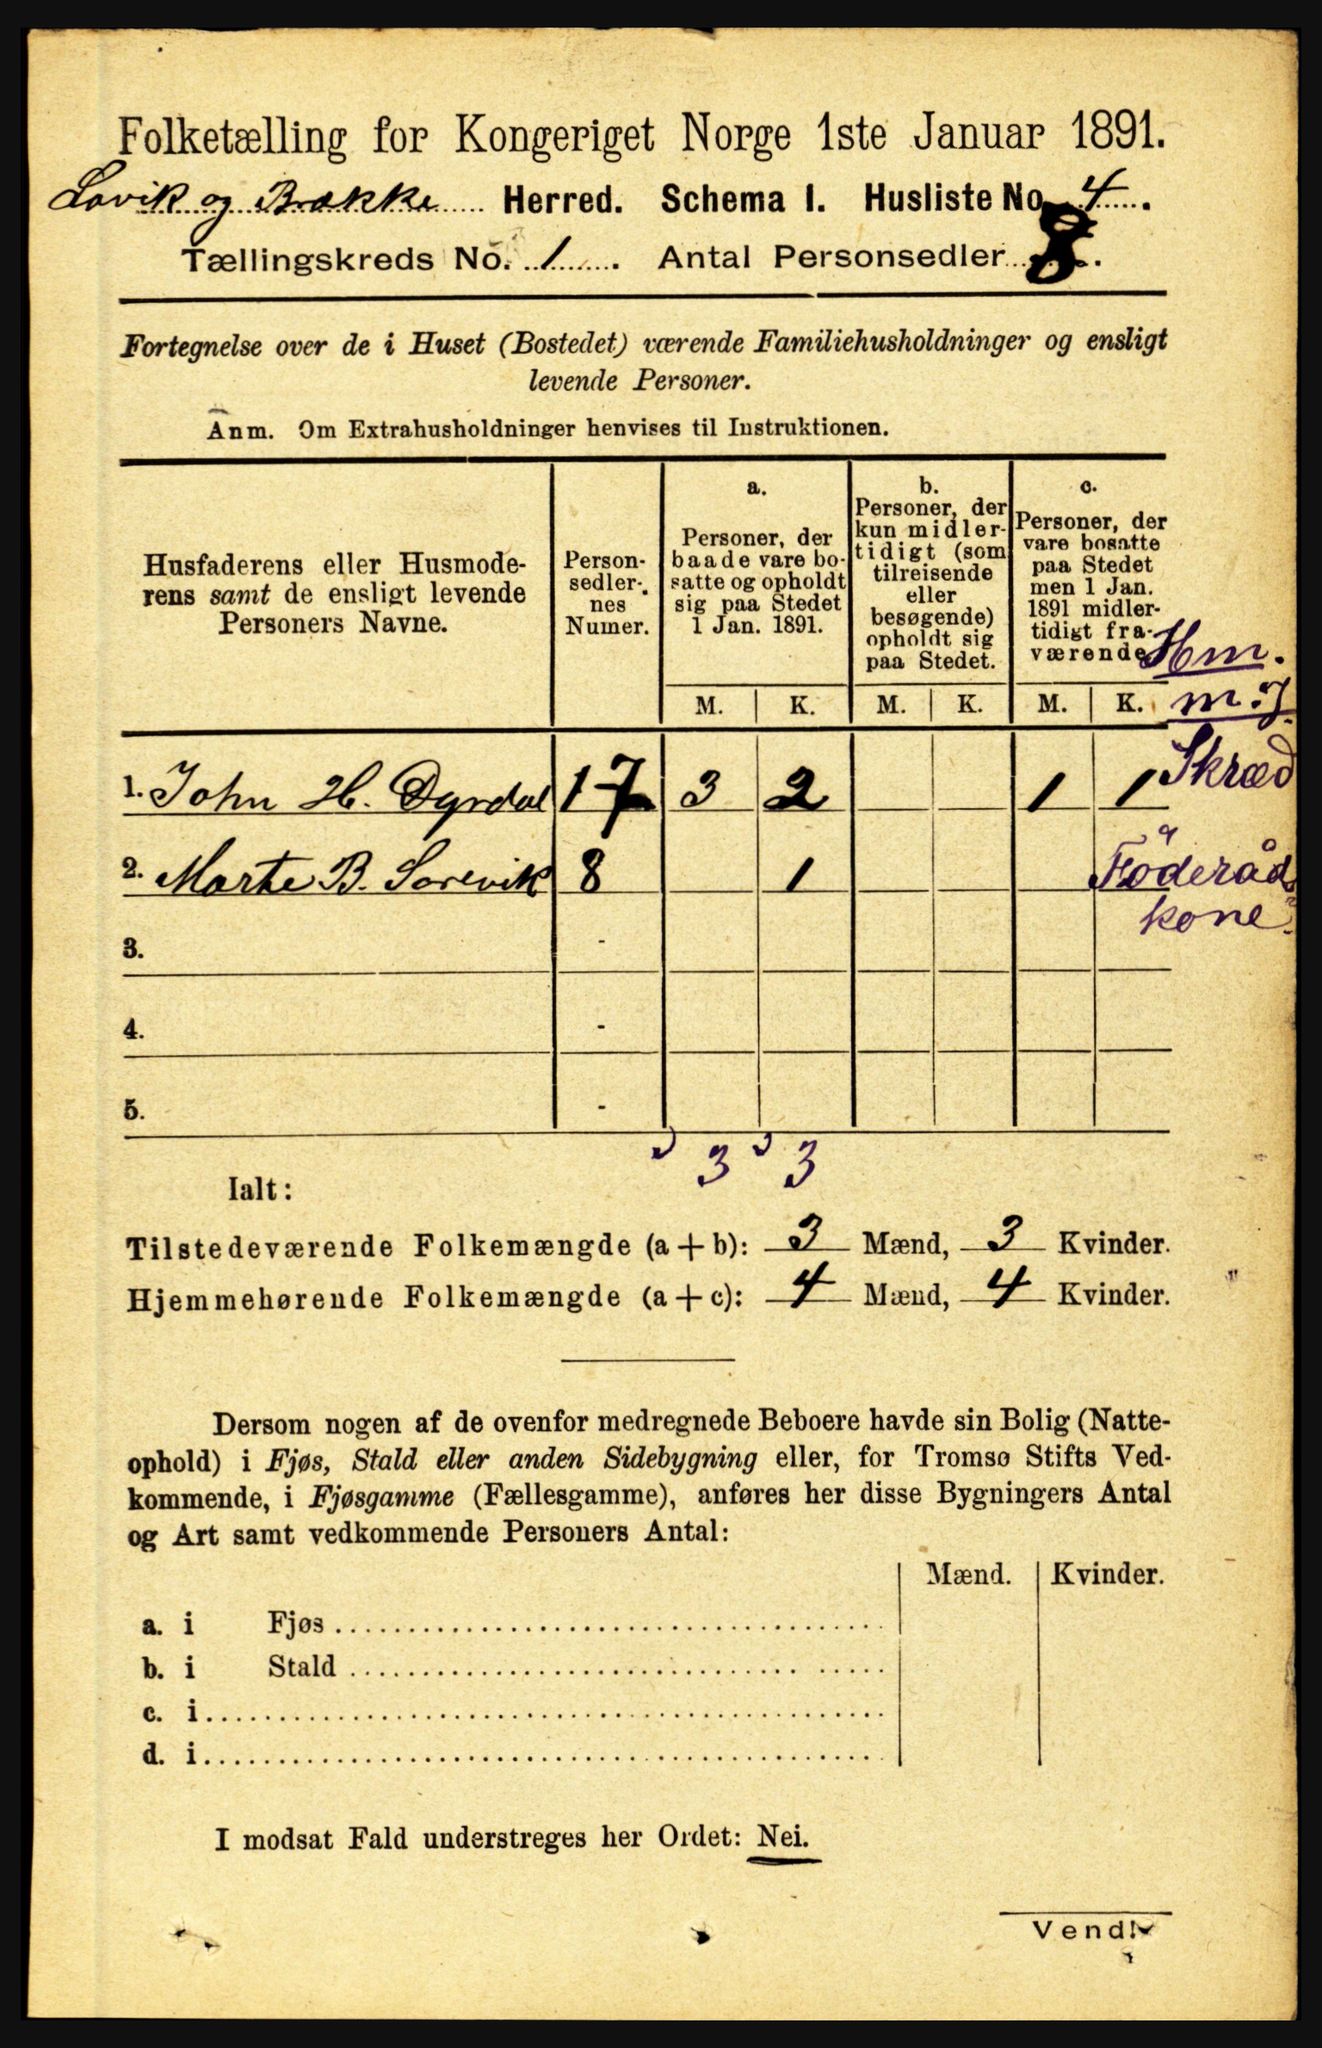 Folketælling for Kongeriget Norge 1ste Januar 1891.
Lavik og Brække Herred. Schema I. Husliste No. 4.
Tællingskreds No. 1. Antal Personsedler 8.
Fortegnelse over de i Huset (Bostedet) værende Familiehusholdninger og ensligt
levende Personer.
Anm. Om Extrahusholdninger henvises til Instruktionen.
Husfaderens eller Husmode-
rens samt de ensligt levende
Personers Navne.
Person-
sedler-
nes
Numer.
a.
Personer, der
baade vare bo-
satte og opholdt
sig paa Stedet
1 Jan. 1891.
b.
Personer, der
kun midler-
tidigt (som
tilreisende
eller
besøgende)
opholdt sig
paa Stedet.
c.
Personer, der
vare bosatte
paa Stedet
men 1 Jan.
1891 midler-
tidigt fra-
værende
Hm.
M. K. M. K. M. K. m. J.
1. John H. Dyrdal 1-7 3 2 1 1 Skræd
2. Marte B. Sørevik 8 1 Föderåds
kone
3. -
4. -
5. -
3 3
Ialt:
Tilstedeværende Folkemængde (a + b): 3 Mænd, 3 Kvinder.
Hjemmehørende Folkemængde (a + c): 4 Mænd, 4 Kvinder.
Dersom nogen af de ovenfor medregnede Beboere havde sin Bolig (Natte-
ophold) i Fjøs, Stald eller anden Sidebygning eller, for Tromsø Stifts Ved-
kommende, i Fjøsgamme (Fællesgamme), anføres her disse Bygningers Antal
og Art samt vedkommende Personers Antal:
Mænd. Kvinder.
a. i Fjøs
b. i Stald
c. i
d. i
I modsat Fald understreges her Ordet: Nei.
Vend!